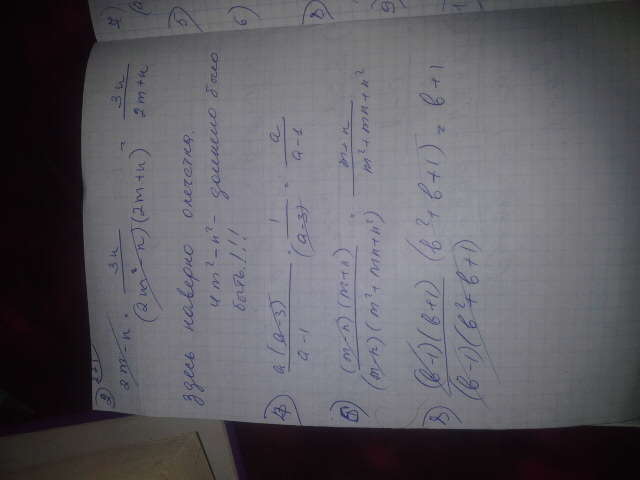 2)
2m-n · 3n / (2m²-n)(2m+n) = 3n / 2m+n
здесь наверно опечатка.
4m²-n² - должно было
быть!!!
4) a(a-3) / a-1 · 1 / (a-3) = a / a-1
(m-n)(m+n) / (m-n)(m²+mn+n²) = m+n / m²+mn+n²
8) (b-1)(b+1) / (b-1)(b²+b+1) (b²+b+1) = b+1
7)
6)
8)
9)